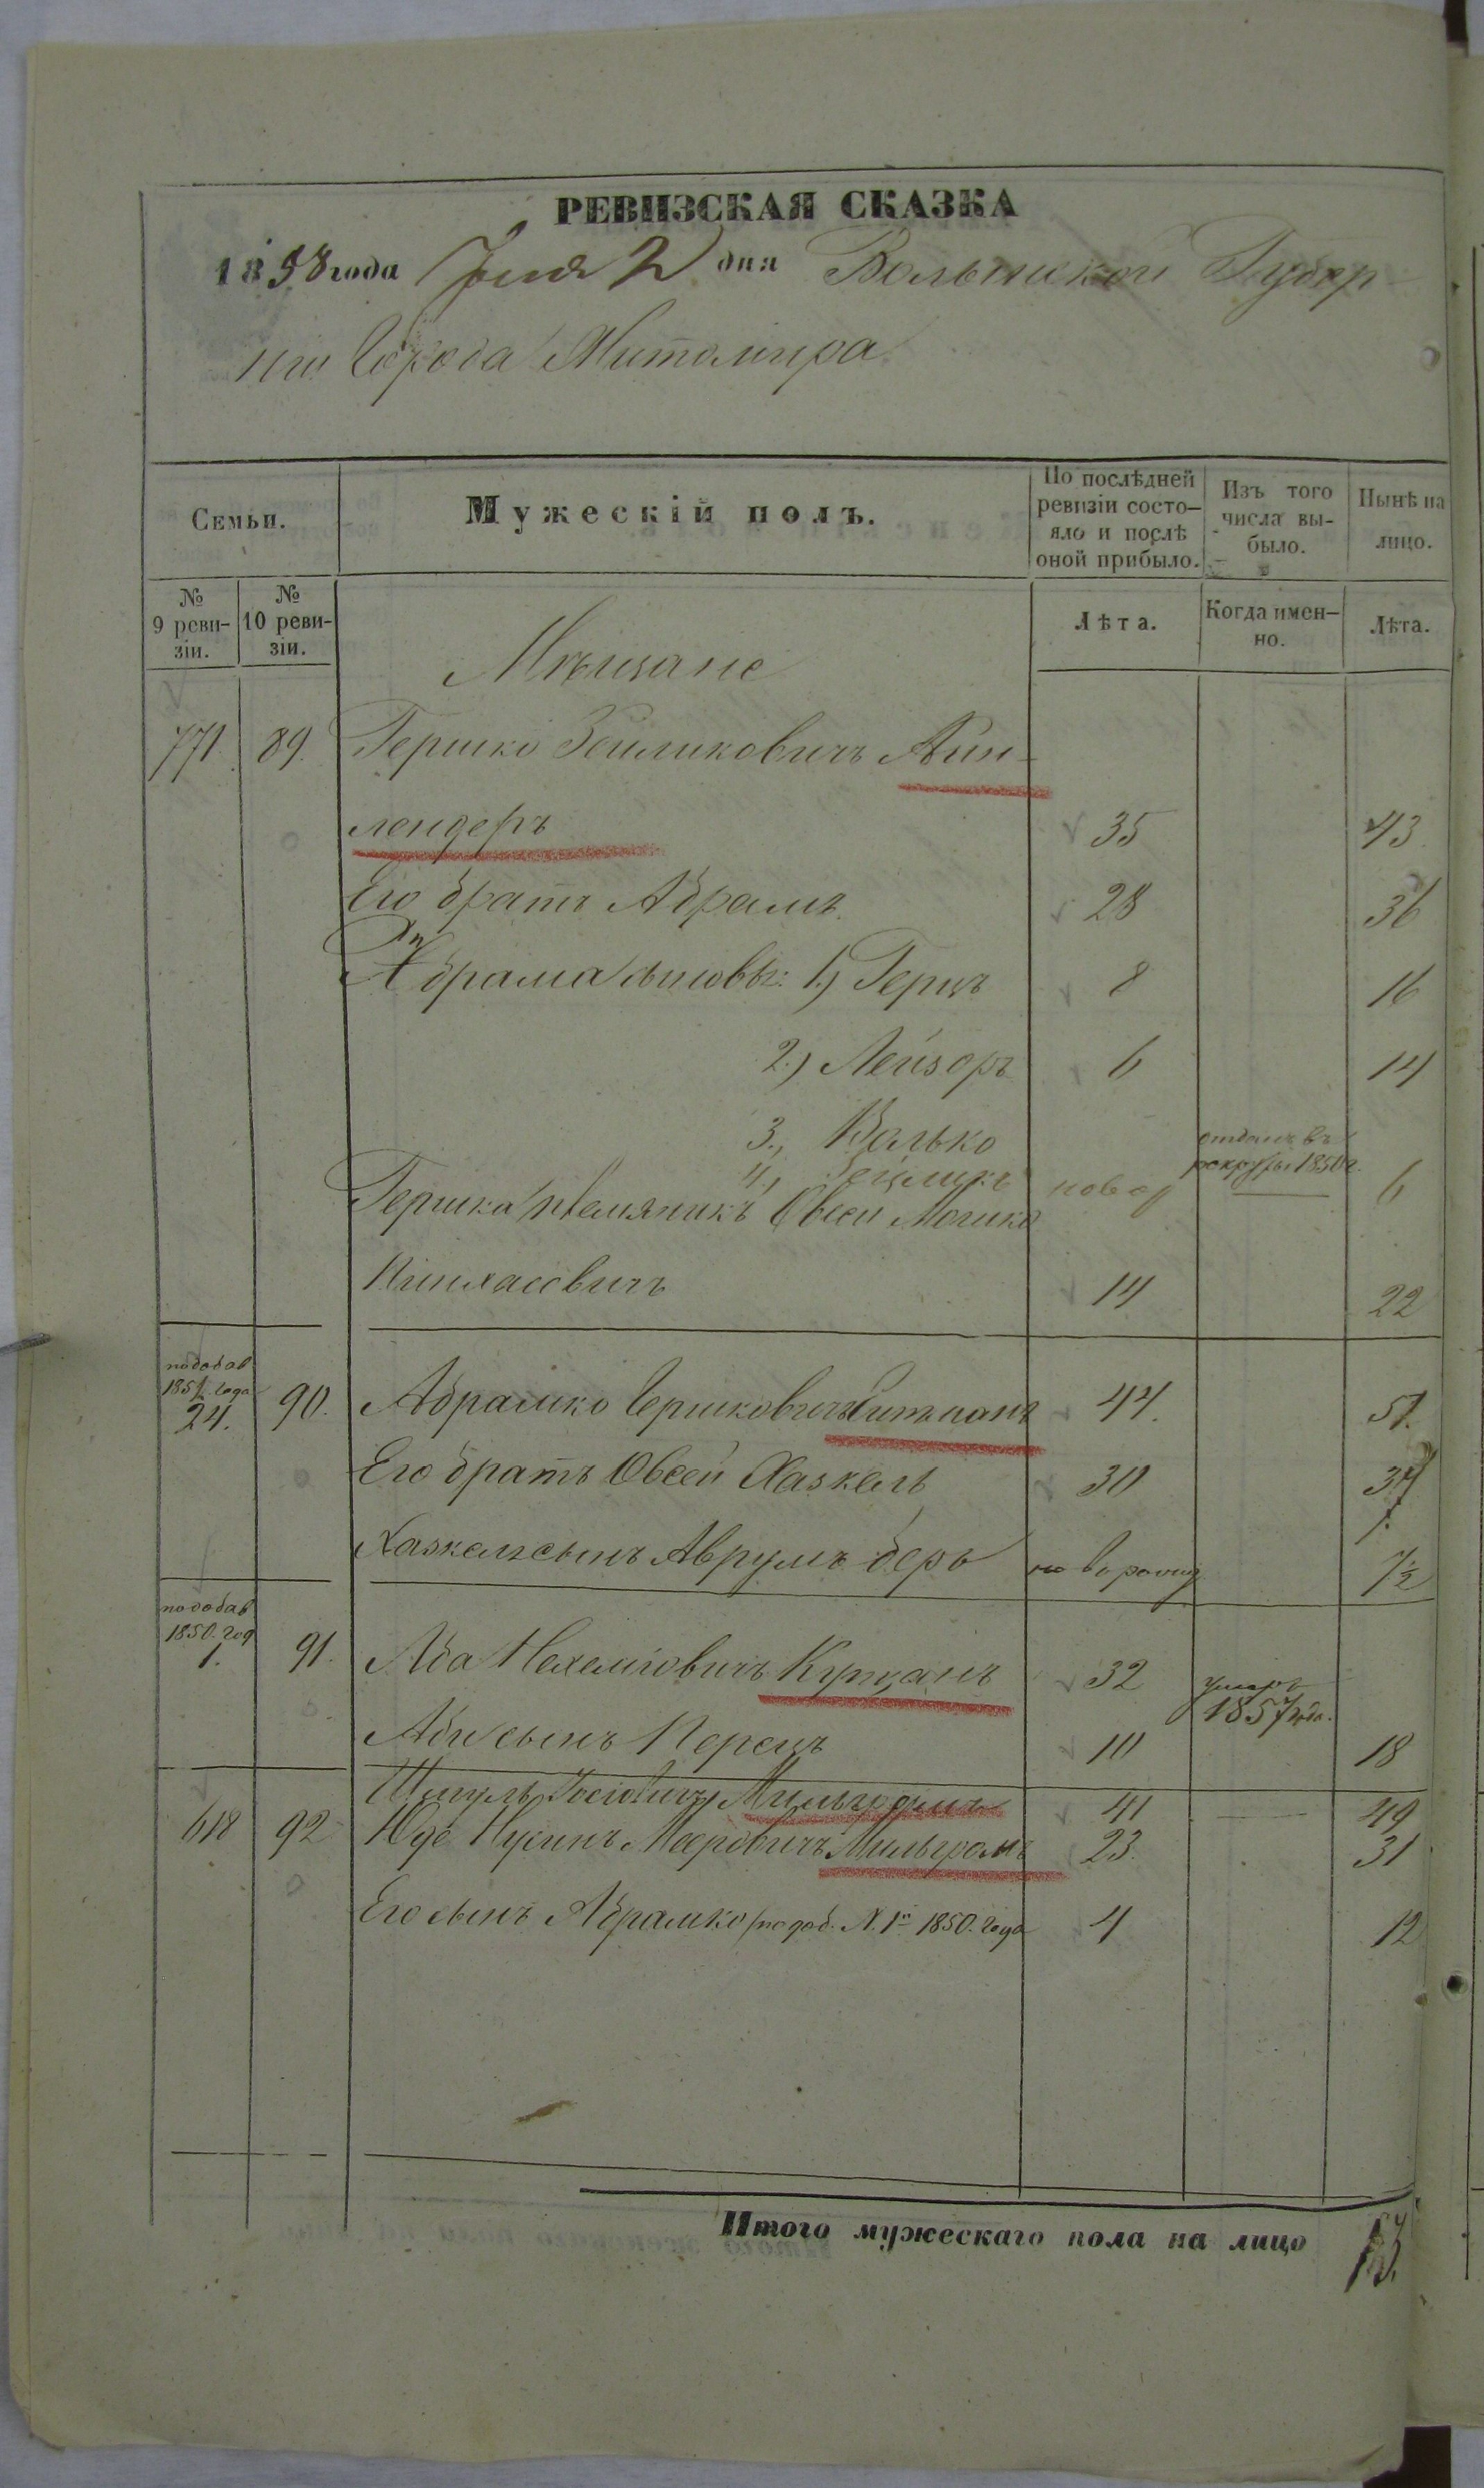 РЕВИЗСКАЯ СКАЗКА
1858 года Іюля 2 дня Волынской Губер
ніи Города Житомира
Семьи.
Мужескій полъ.
По послѣдней ревизіи состо-яло и послѣ оной прибыло.
Изъ того числа вы-было.
Нынѣ на лицо.
№ 9 реви-зіи.
№ 10 реви-зіи.
Лѣта.
Когда имен-но.
Лѣта.
Мѣщане
771. 89. Гершко Зейликовичъ Аин-
лендеръ 35 43
Его братъ Абрамъ 28 36
Абрама сыновья: 1.) Герцъ 8 16
2.) Лейзоръ 6 14
3., Волько отданъ въ рекруты 1850 г.
4., новор 6
Гершка племянникъ Овсей Мошко
Пинхасовичъ 14 22
подобав 1851. года 24. 90. Абрамко Гершковичъ 44. 51.
Его братъ Овсей Хаскель 30 37
Хаскеля сынъ Аврумъ беръ новорожд 1/2
подобав 1850. год 1. 91. Аба Нехеміовичъ Курцанъ 32 умеръ 1857 года.
Абы сынъ Перецъ 10 18
Шмуль Іосіовичъ Мильгромъ 41 49
618 92 Юдо Нусинъ Мееровичъ Мильгромъ 23. 31
Его сынъ Абрамко (по доб. N. 1й 1850. года 4 12
Итого мужескаго пола на лицо